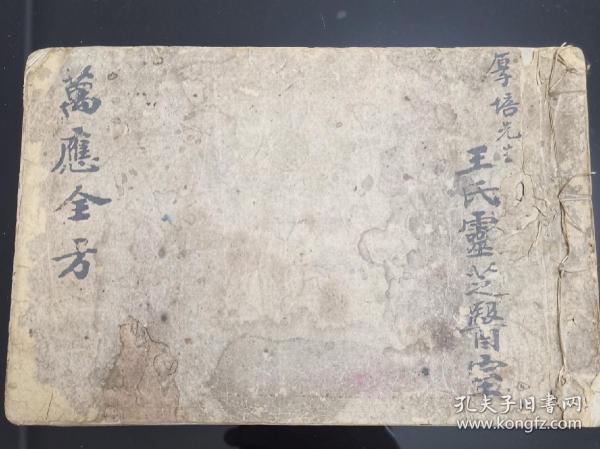 厚培先生
王氏靈芝醫室
萬應全方
孔夫子旧书网
www.kongfz.com